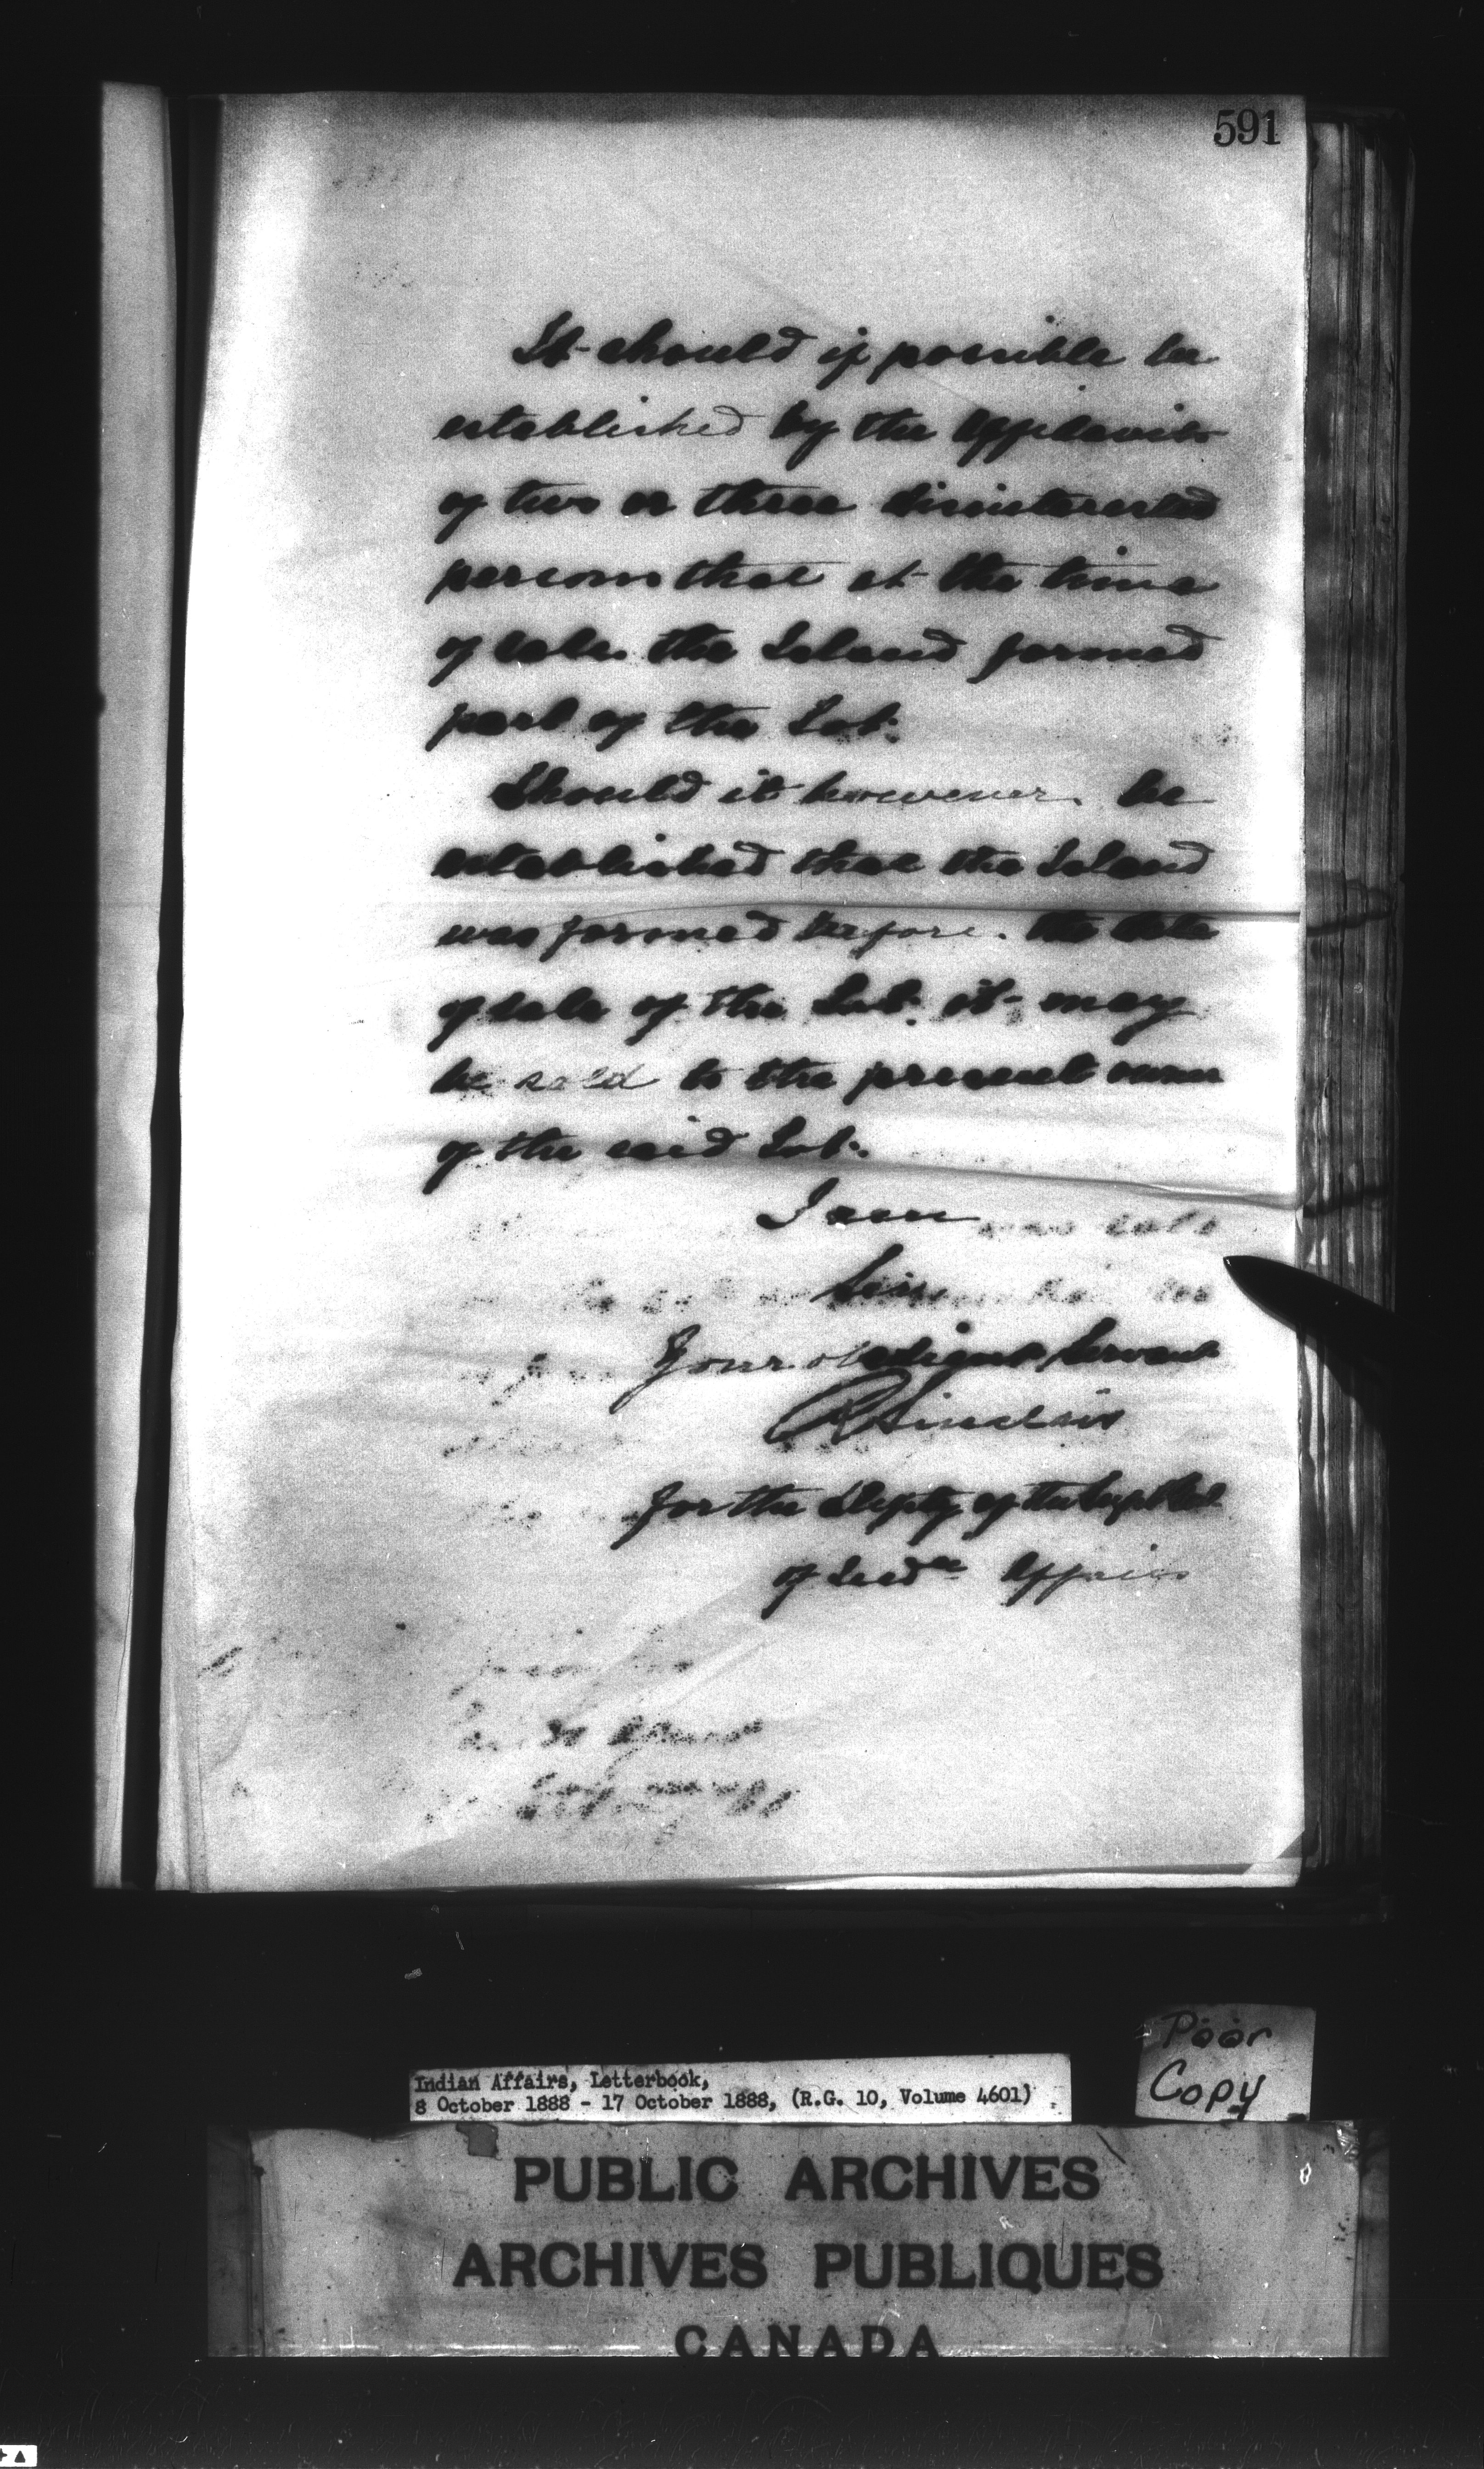 591
It should if possible be
established by the affidavits
of two or three disinterested
persons that at the time
of sale the Island formed
part of the Lot.
Should it however be
established that the Island
was formed before the date
of sale of the Lot it may
be sold to the present owner
of the said Lot.
I am
Sir
Your obedient Servant
R Sinclair
for the Depty of the Supt Genl
of Indn Affairs
Poor
Copy
Indian Affairs, Letterbook,
8 October 1888 - 17 October 1888, (R.G. 10, Volume 4601)
PUBLIC ARCHIVES
ARCHIVES PUBLIQUES
CANADA